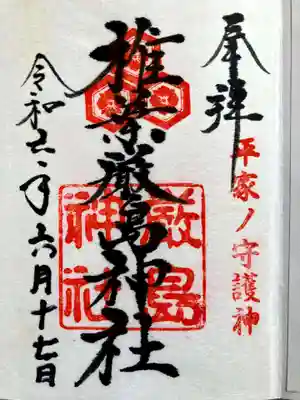 奉拝
平家ノ守護神
椎葉厳島神社
厳島
神社
令和六年六月十七日